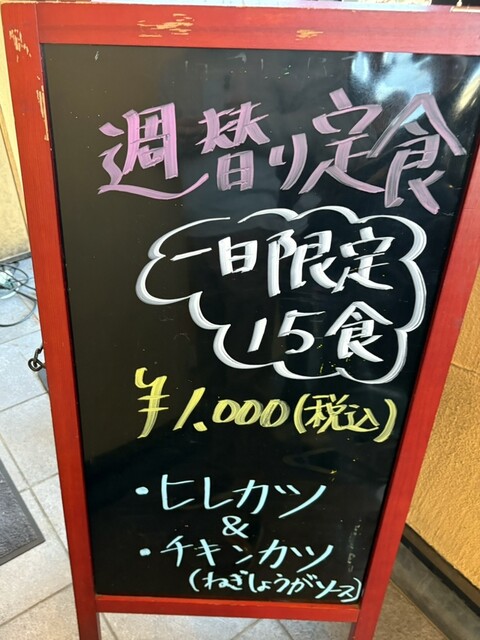 週替り定食
一日限定
15食
¥1.000(税込)
・ヒレカツ
&
・チキンカツ
(ねぎしょうがソース)